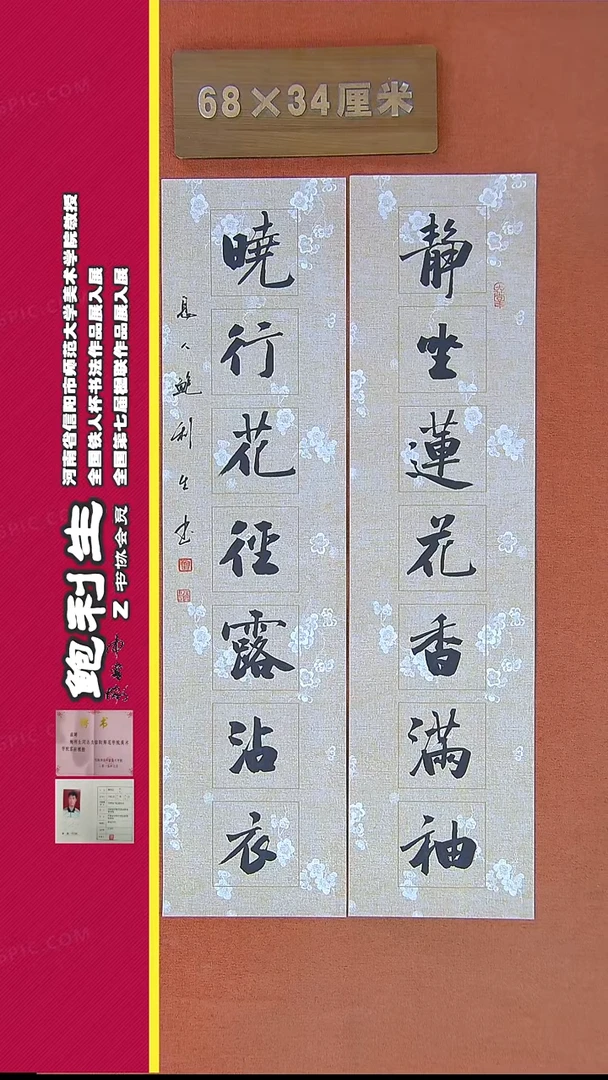 68×34厘米
靜坐蓮花香滿袖
曉行花徑露沾衣
息人鲍利生书
河南省信阳市师范大学美术学院教授
全国铁人杯书法作品展入展
全国第七届楹联作品展入展
鲍利生
Z书协会员